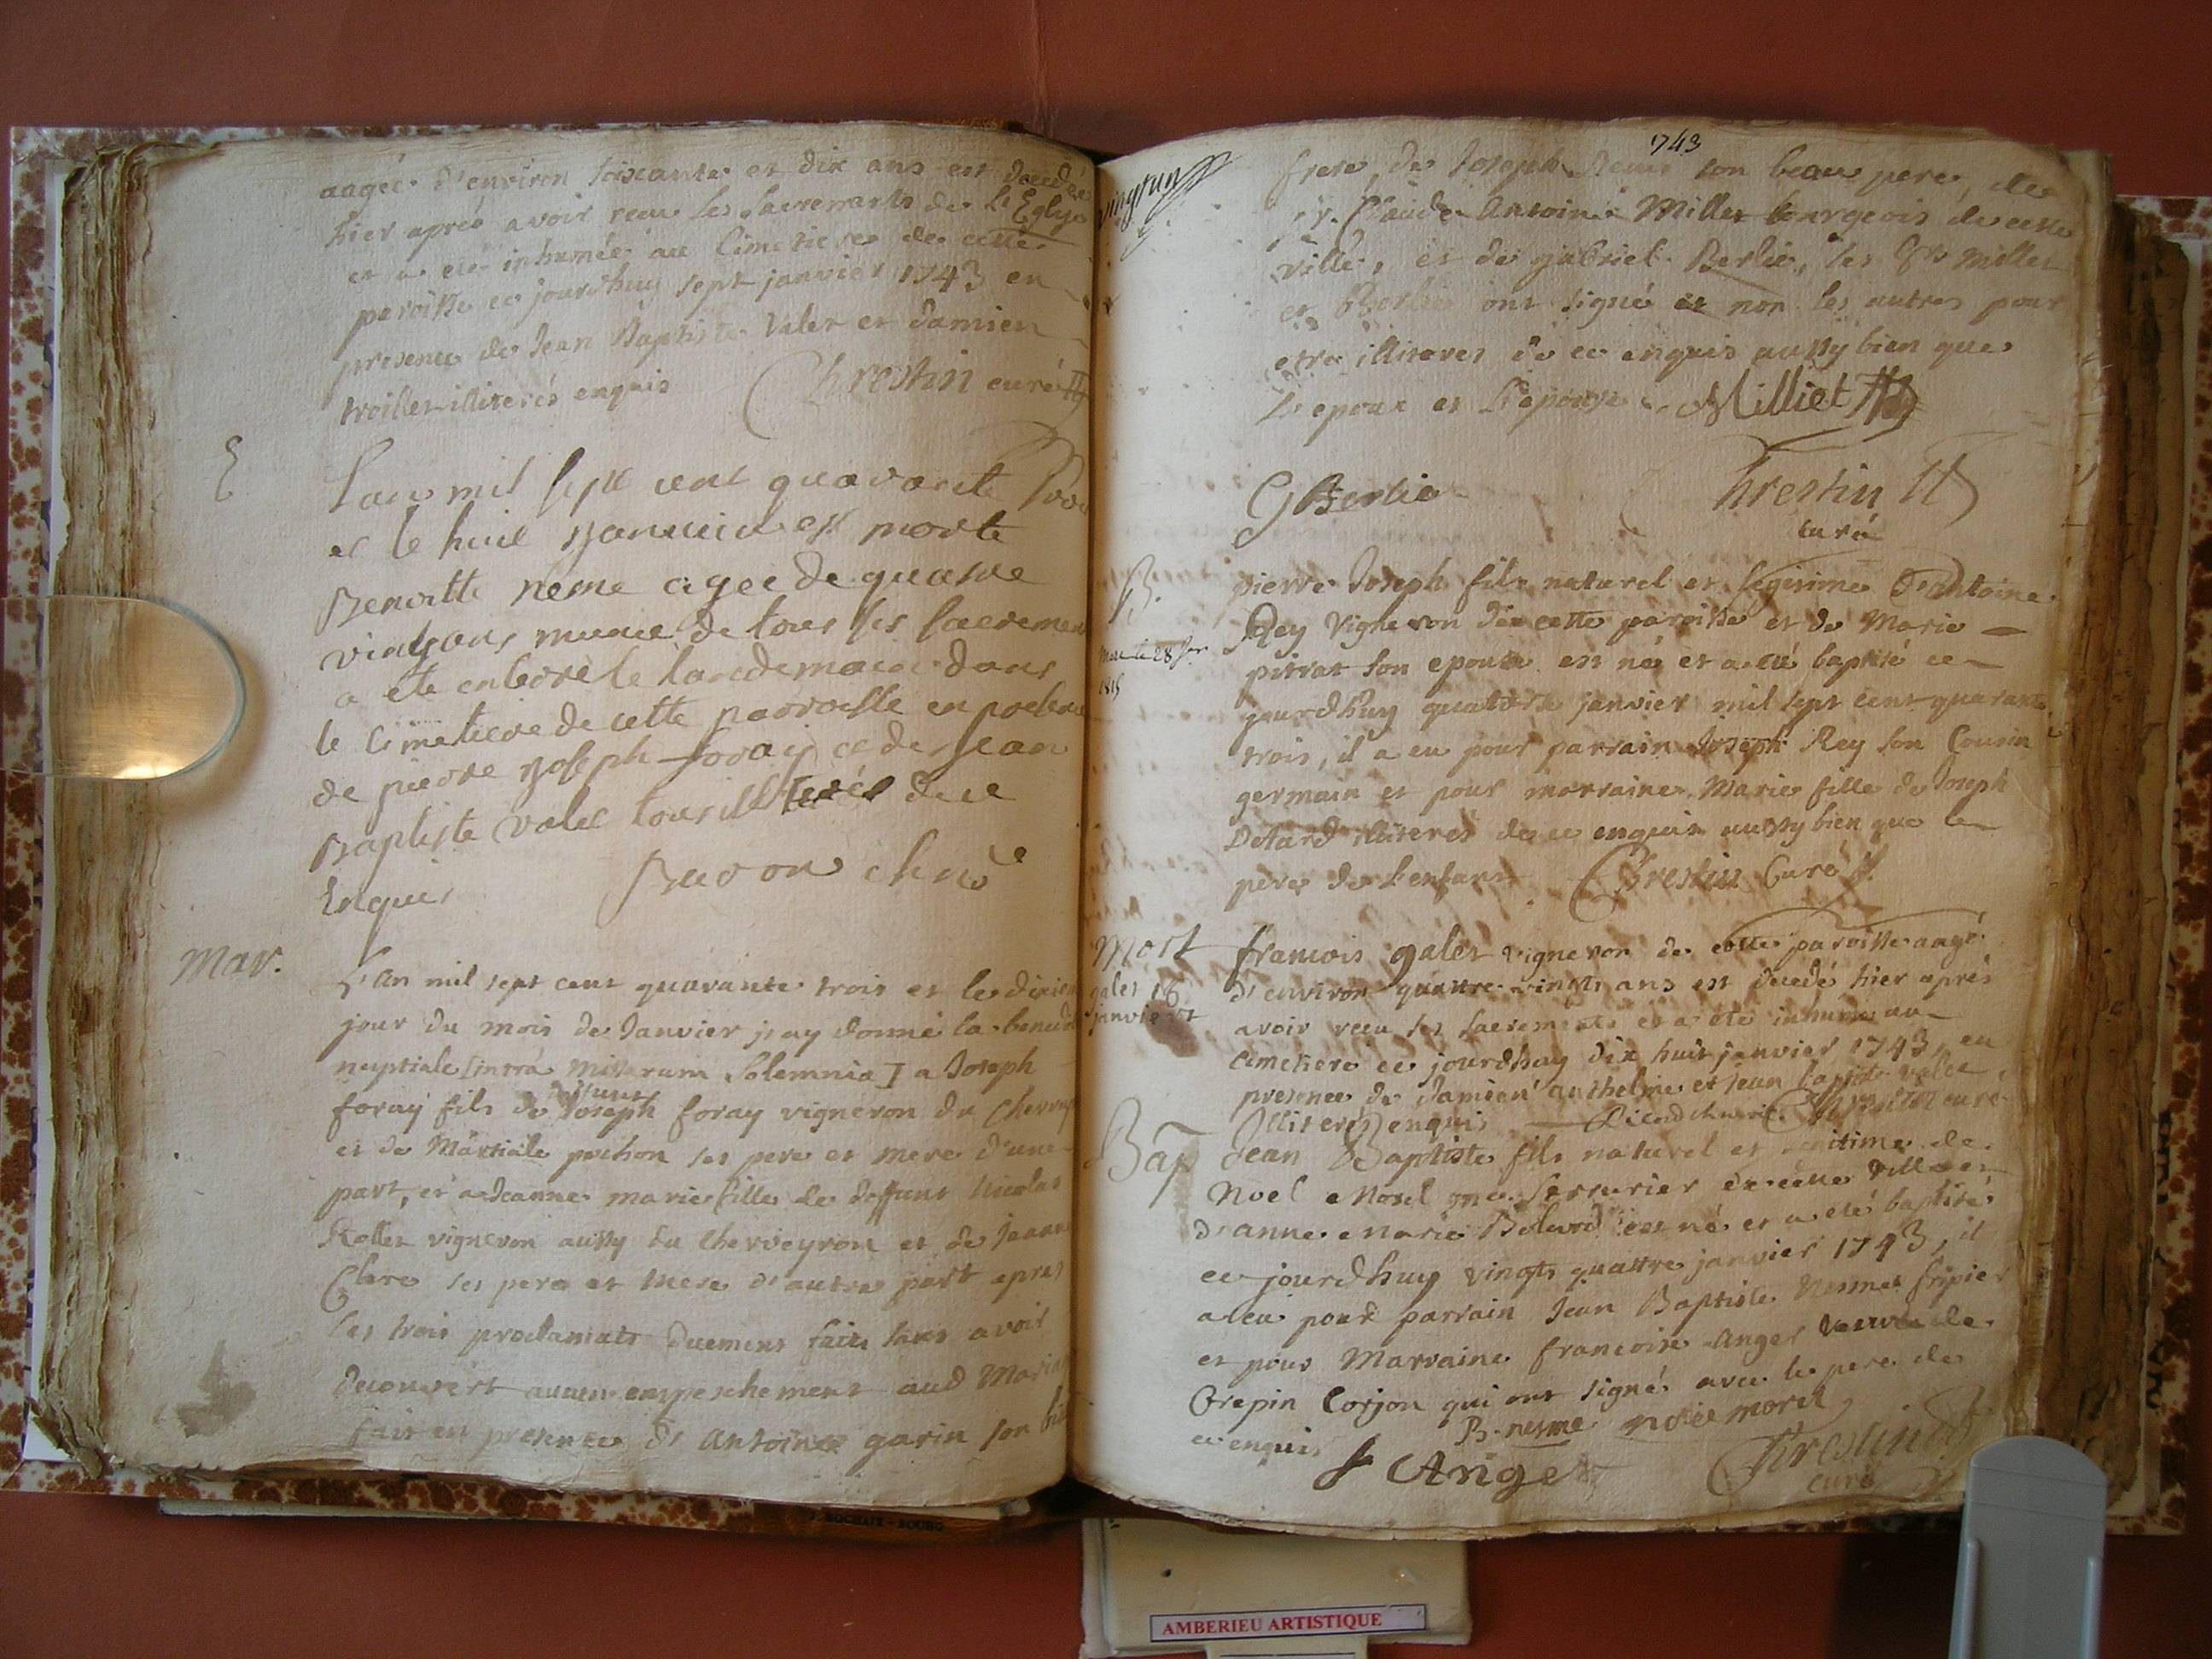 aagée d'environ soixante et dix ans est decedée
hier aprés avoir reçu les sacremants de L'Eglyse
et a eté inhumée au Cimetiere de cette
paroisse ce jourdhuy sept janvier 1743 en
presence de Jean Baptiste Valet et damien
troillet illiterés enquis Chrestin curé
E
Lan mil sept cent quarante
et le huit janvier est morte
Benoitte neme agee de quatre
vint ans munie de tous ses sacremen
a ete enterre le landemain dans
le cimetiere de cette parroisse en presence
de pierre joseph foray et de Jean
Baptiste valet tous illiterés de ce
Enquis
Mar.
L'an mil sept cent quarante trois et le dixiem
jour du mois de Janvier j'ay donné la benedi
nuptiale [intra Missarum Solemnia] a Joseph
deffunt
foray fils de Joseph foray vigneron du Cherv
et de Martiale pochon ses pere et mere d'une
part, et a Jeanne marie fille de deffunt Nicolas
Rollet vigneron aussy du Cherveyron et de Jeanne
Clerc ses pere et mere d'autre part apres
les trois proclamats duement faits sans avoir
decouvert aucun empeschement aud Mariag
fait en presence d'Antoine garin son
1743
vingtun
frere, de Joseph son beau pere, de
sr. Claude Antoine Millet bourgeois de cette
ville, et de gabriel Berlie, les Srs Millet
et Berlie ont signé et non les autres pour
etre illiteres de ce enquis aussy bien que
L'epoux et L'epouse Milliet
G Berlie Chrestin
curé
B.
pierre Joseph fils naturel et legitime d'Antoine
Rey Vigneron de cette paroisse et de Marie
pitrat son epouse est né et a eté baptisé ce
jourdhuy quatorse janvier mil sept cent quarante
trois, il a eu pour parrain Joseph Rey son Cousin
germain et pour marraine Marie fille de Joseph
Detard illiteres de ce enquis aussy bien que le
pere de L'enfant Chrestin Curé
Mort
galet 18
janvier
francois galet vigneron de cette paroisse aagé
d'environ quattre vingts ans est decedé hier aprés
avoir recu les sacrements et a eté inhumé au
cimetiere ce jourdhuy dix huit janvier 1743, en
presence de damien anthelme et jean baptiste valet
Illiterés enquis Chrestin curé
Bap
Jean Baptiste fils naturel et legitime de
Noel Morel me. Serrurier de cette ville et
d'anne Marie Bolard est né et a eté baptisé
ce jourdhuy vingts quattre janvier 1743, il
a eu pour parrain Jean Baptiste Nesme fripier
et pour Marraine francoise Anger veuve de
Crepin Corjon qui ont signé avec le pere de
ce enquis B. nesme noel morel
f Anger Chrestin
curé
AMBERIEU ARTISTIQUE